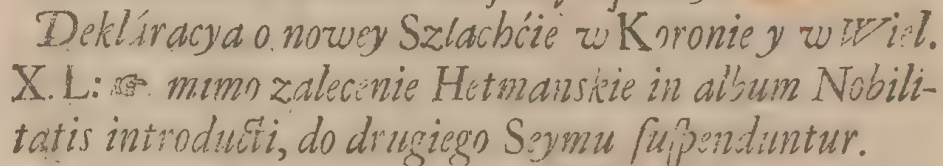 Dekláracya o nowey Szlachćie w Koronie y w Wiel.
X. L: ☞ mimo zalecenie Hetmanskie in album Nobili-
tatis introducti, do drugiego Seymu ſuſpenduntur.